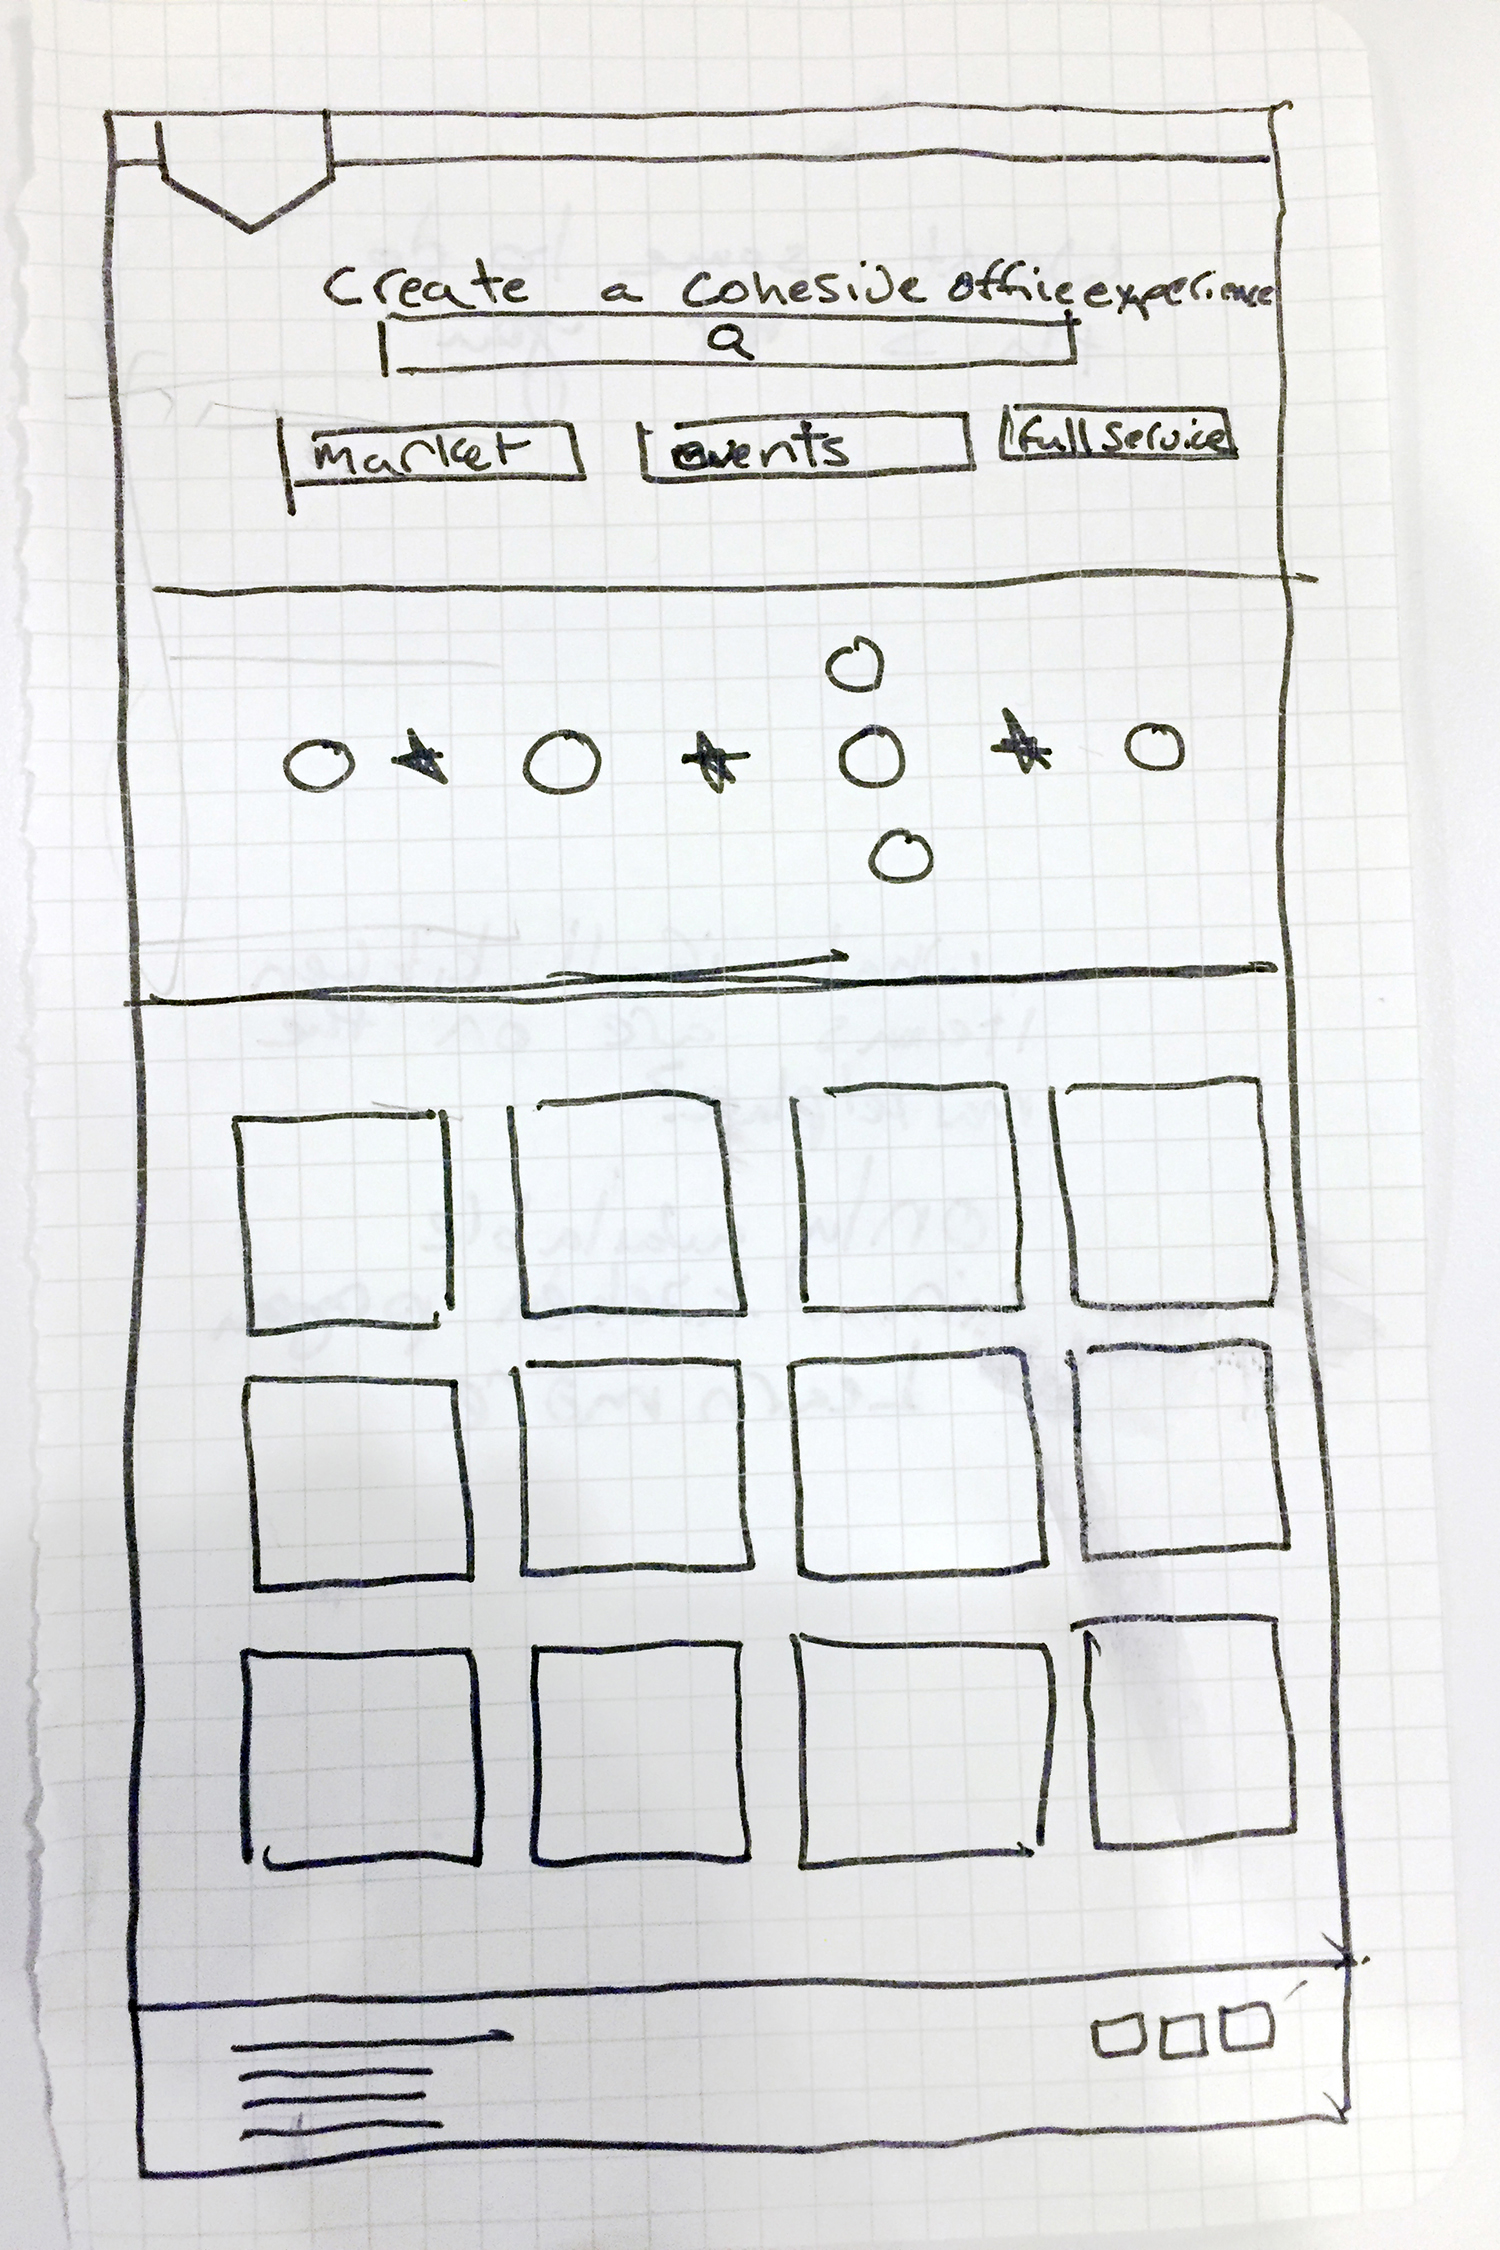 Create a cohesive office experience
Q
market
events
full service